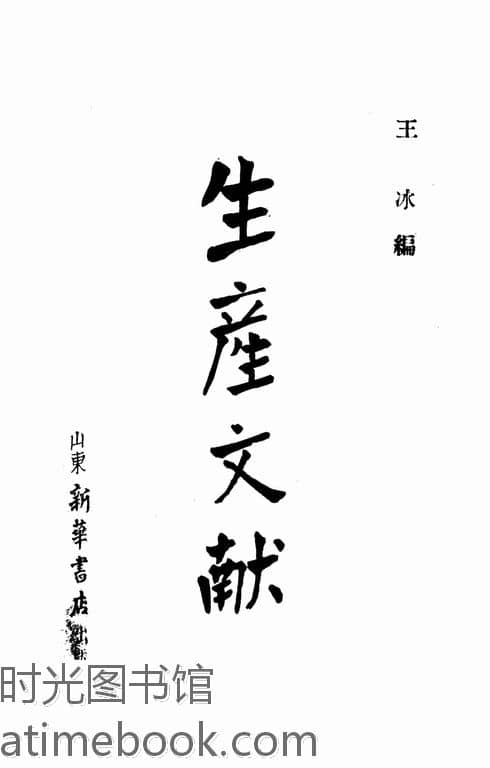 王冰編
生產文献
山東新華書店出
时光图书馆
atimebook.com